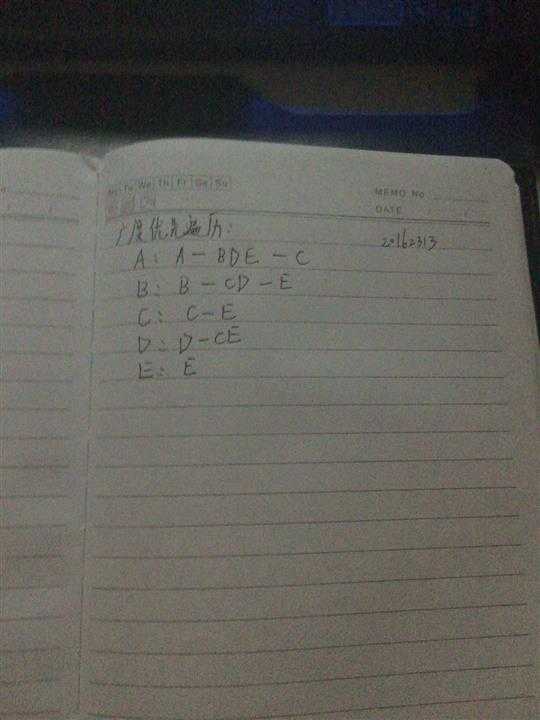 Mo Tu We Th Fr Sa Su
MEMO No.
DATE
广度优先遍历:
20162313
A: A - BDE - C
B: B - CD - E
C: C - E
D: D - CE
E: E